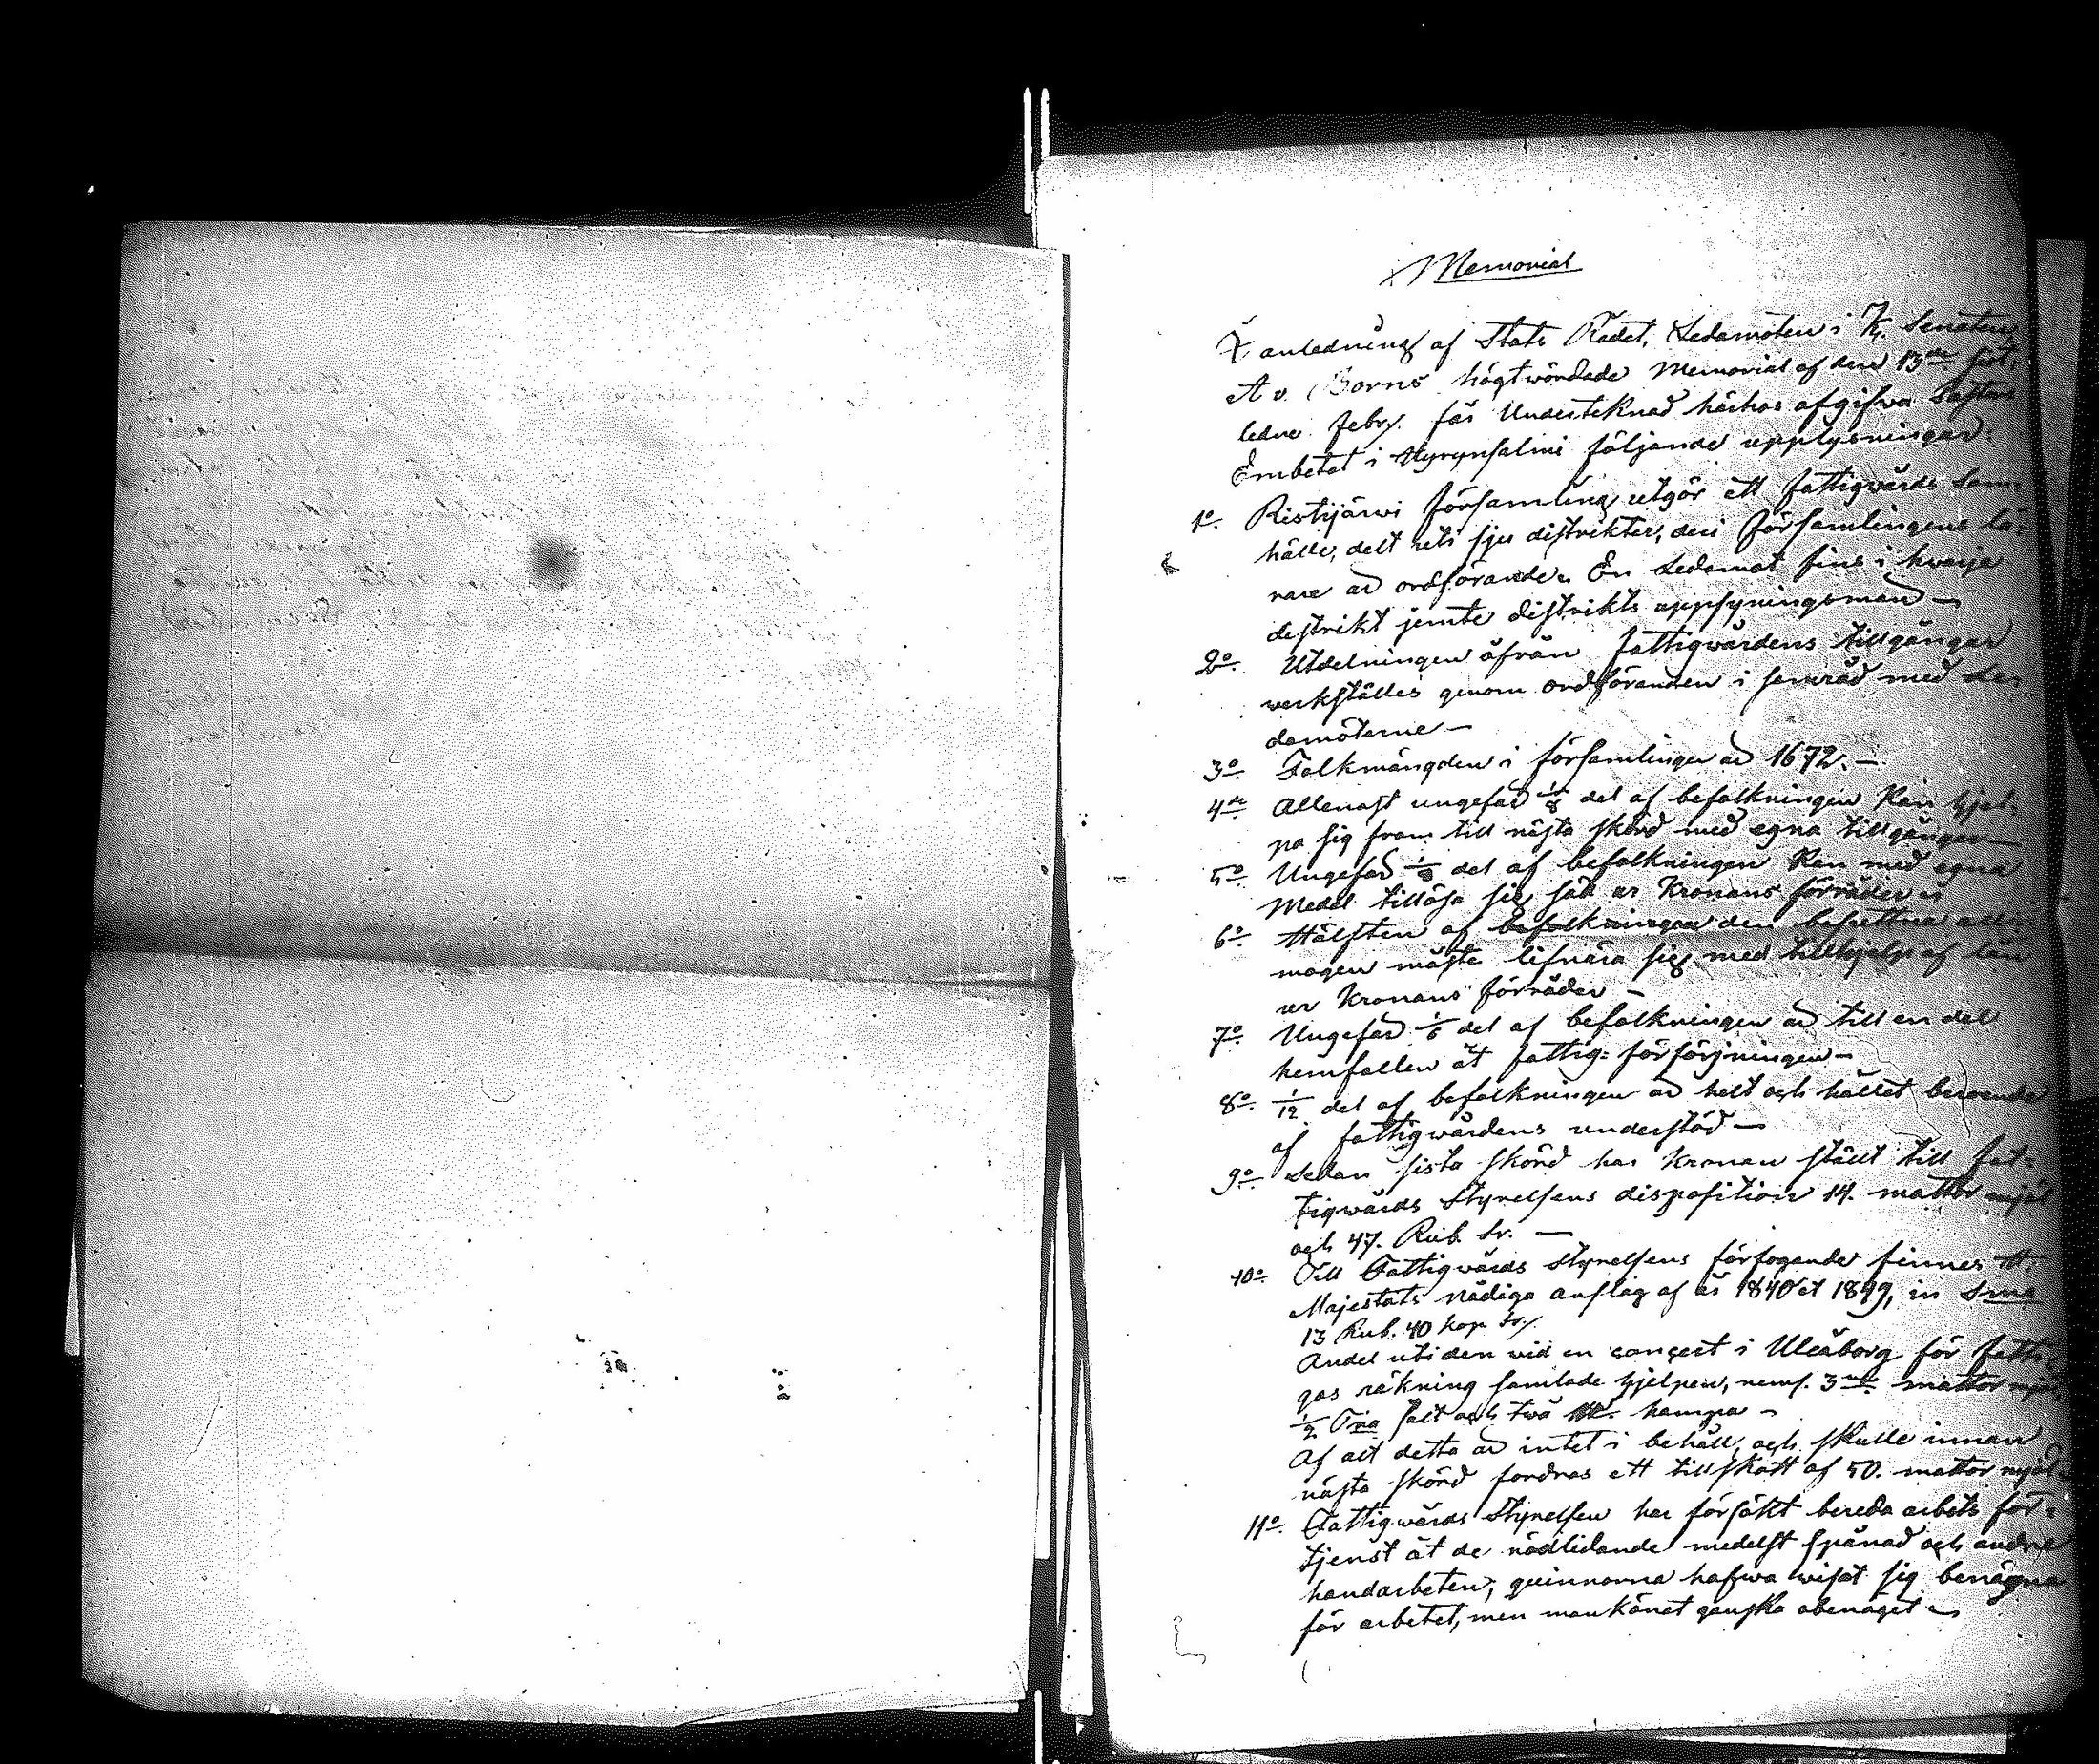 Memorial
I anledning af Stats Rådet, Ledamoten i K. Senaten,
A v. Borns högtvördade Memorial af den 13de sist-
ledne Febr. får Undertecknad härhos afgifwa Pastors
Embetet i Hyrynsalmi följande upplysningar:
1o. Ristijärwi Församling utgör ett fattigvårds Sam-
hälle, delt uti sju distrikter, deri Församlingens lä-
rare är ordförande. En Ledamot fins i hwarje
distrikt jemte distrikts uppsyningsman —
2o. Utdelningen åfrån Fattigvårdens tillgångar
verkställes genom ordföranden i samråd med Le-
damöterne —
3o. Folkmängden i församlingen är 1672. —
4de Allenast ungefär 1/8 del af befolkningen kan hjel-
pa sig fram till nästa skörd med egna tillgångar —
5o. Ungefär 1/8 del af befolkningen kan med egna
Medel tillösa sig säd ur Kronans förråder
6o. Hälften af befolkningen den besuttna all-
mogen måste lifnära sig med tillhjelp af lån
ur Kronans förråder —
7o. Ungefär 1/6 del af befolkningen är till en del
hemfallen åt fattig-försörjningen —
8o. 1/12 del af befolkningen är helt och hållet beroende
af fattigvårdens understöd —
9o. Sedan sista skörd har Kronan ställt till fat-
tigvårds Styrelsens disposition 14. mattor mjöl
och 47. Rub. Sr. —
10o. Till Fattigvårds Styrelsens förfogande finnes H.
Majestäts nådiga anslag af år 1840 et 1849, in Sma
13 Rub. 40 kop Sr.
Andel uti den vid en concert i Uleåborg för fatti-
gas räkning samlade hjelpen, neml. 3ne mattor mjöl,
1/2 Tna salt och två hampa —
Af alt detta är intet i behåll, och skulle innan
nästa skörd fordras ett tillskott af 50. mattor mjöl
11o. Fattigvårds Styrelsen har försökt bereda arbets för-
tjenst åt de nödlidande medelst spånad och andra
handarbeten; quinnorna hafwa wisat sig benägna
för arbetet, men mankönet ganska obenäget —